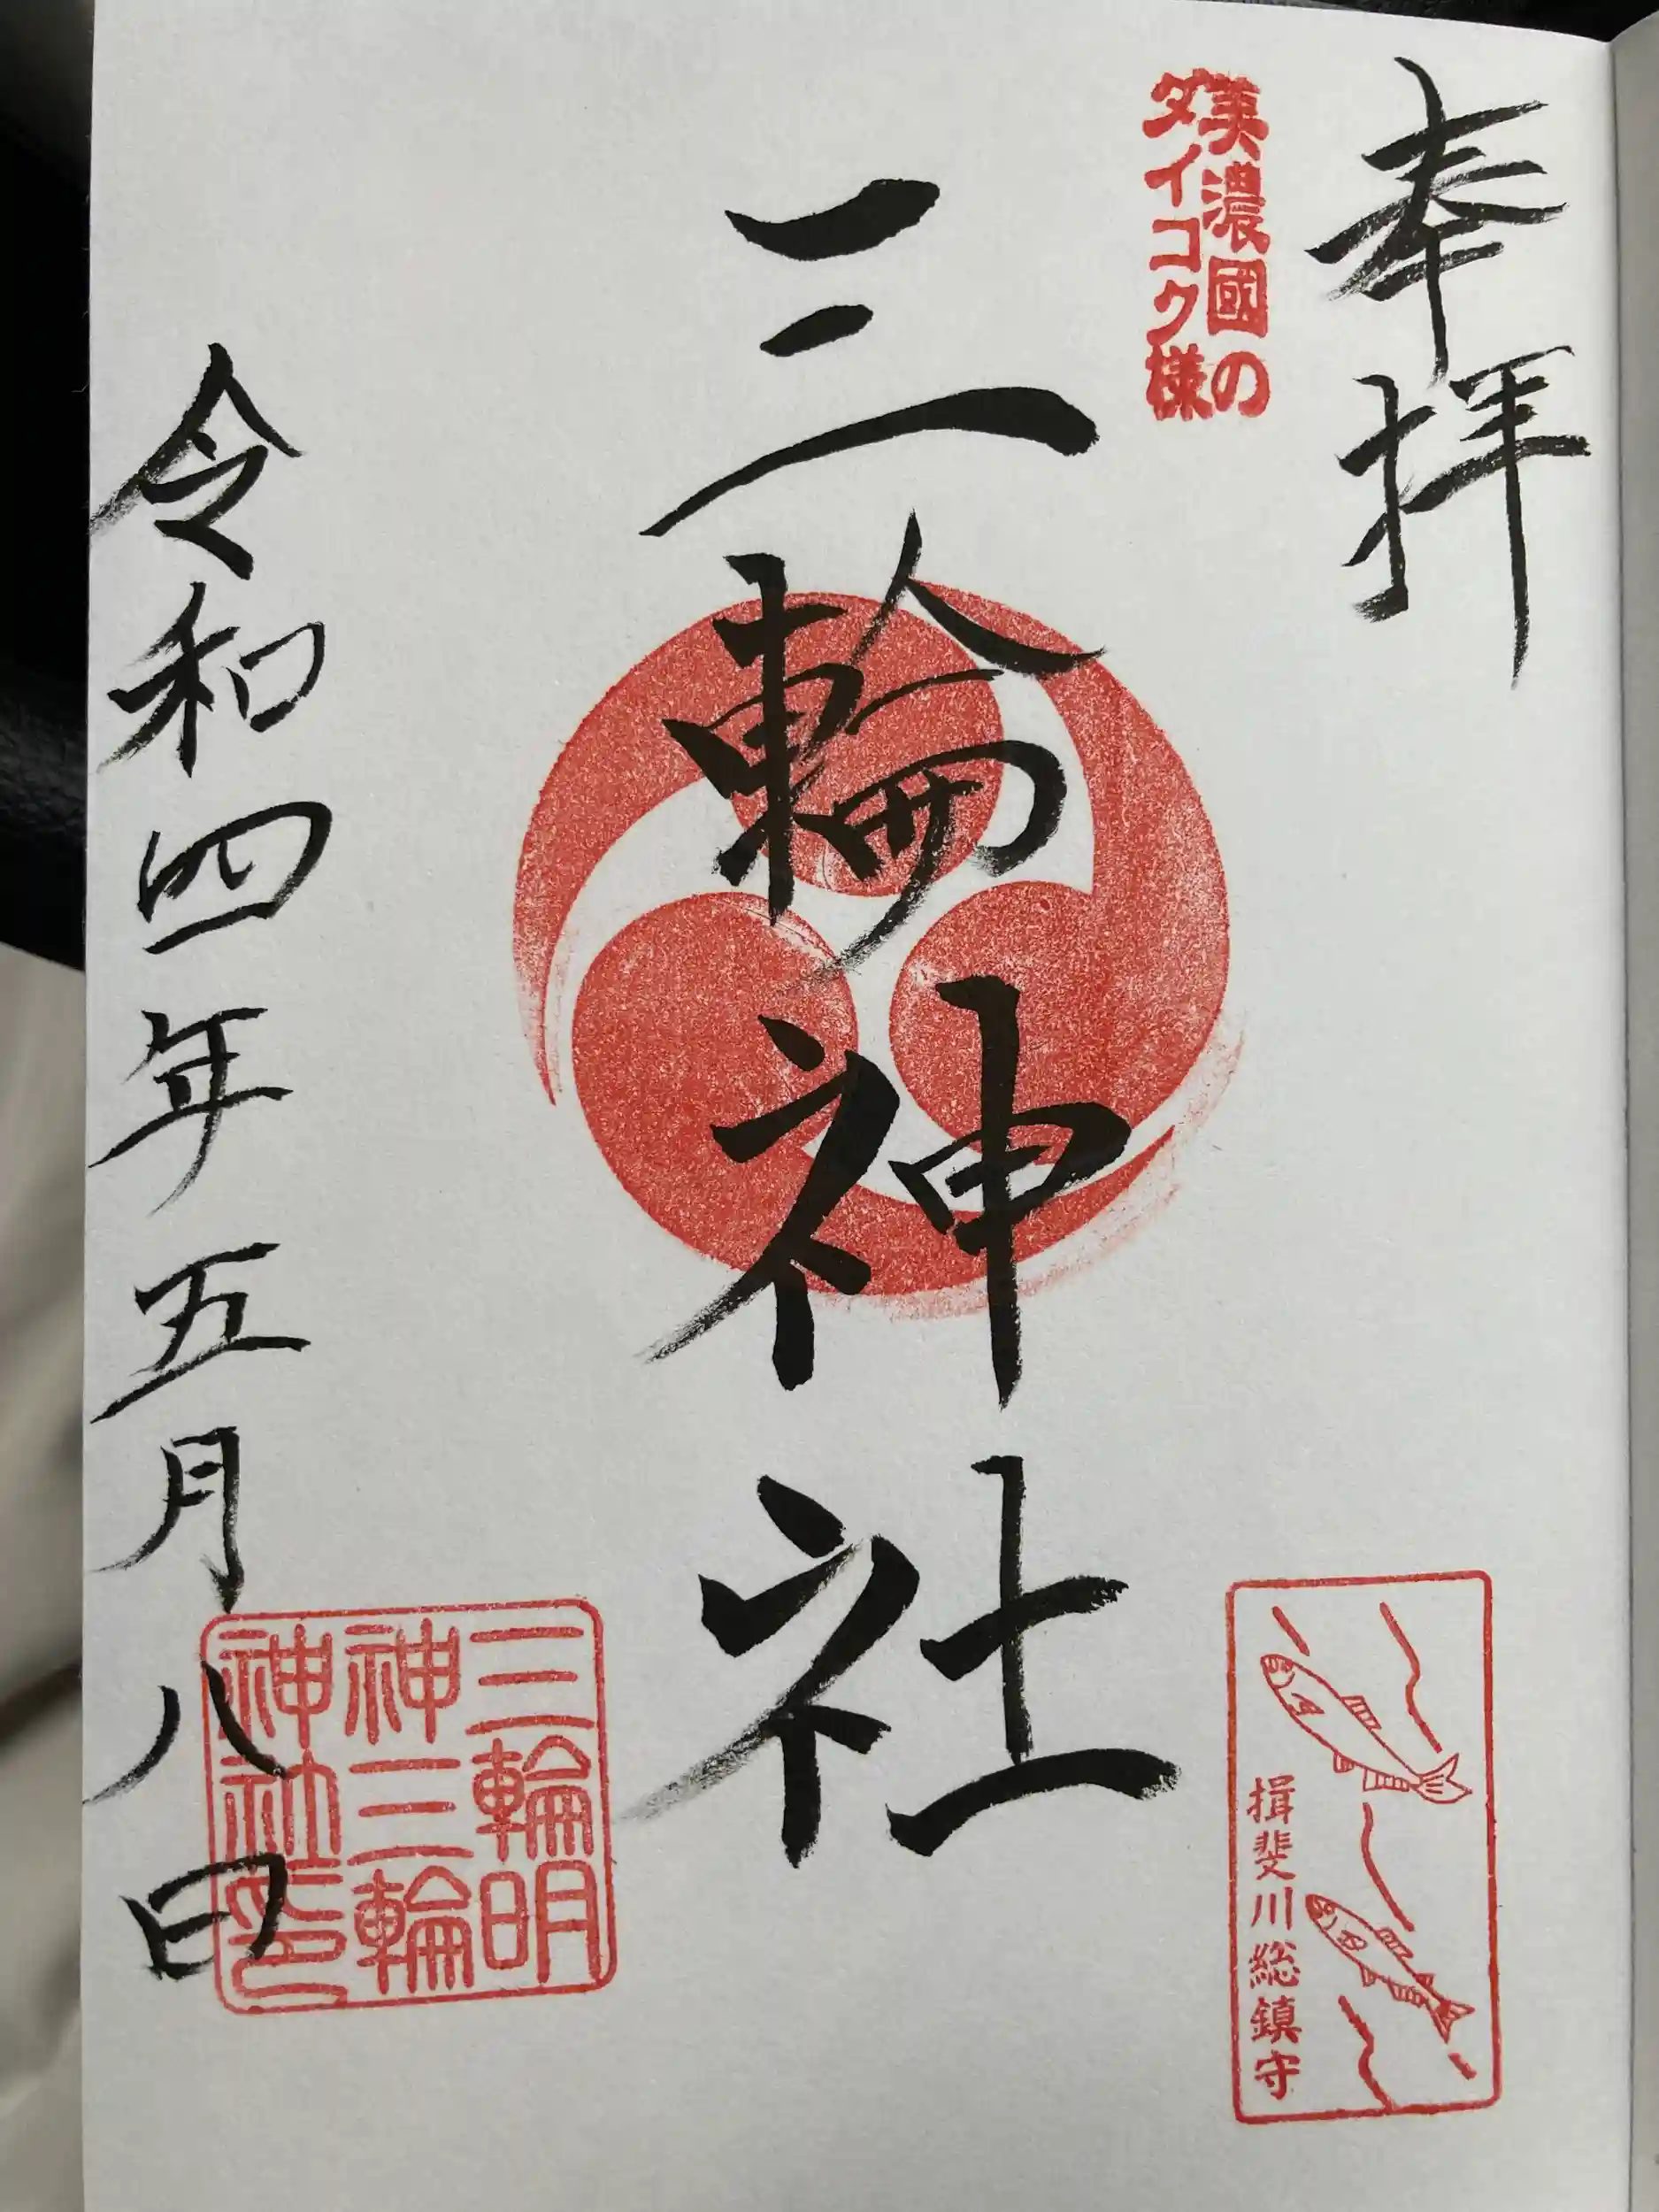 奉拝
美濃國の
ダイコク様
三輪神社
令和四年五月八日
三輪明
神三輪
神社印
揖斐川総鎮守